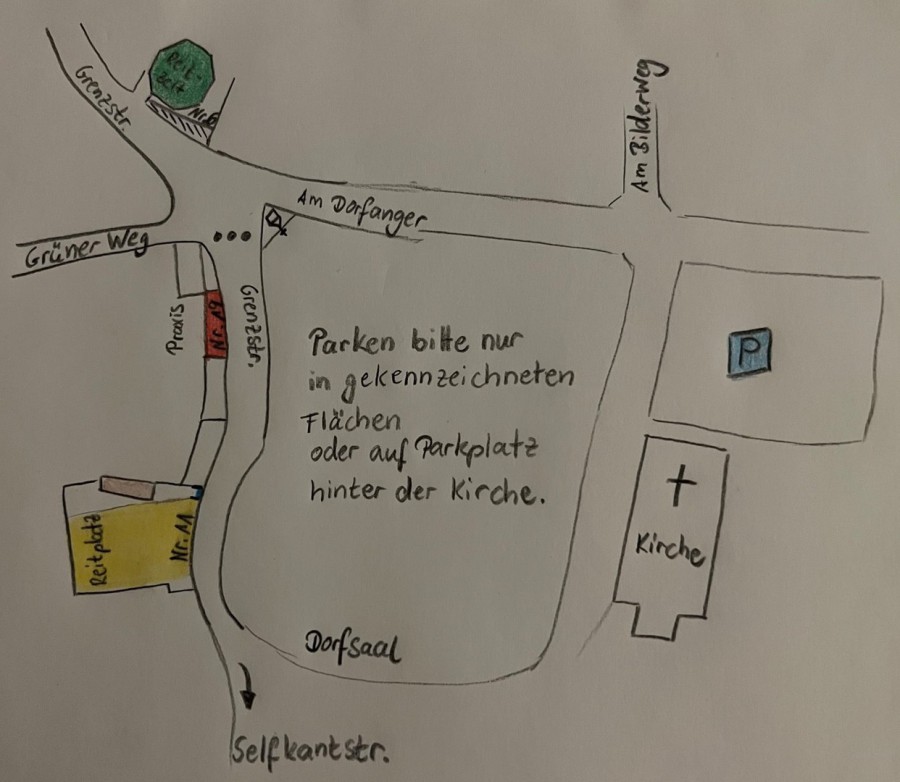 Grenzstr.
Reit-
zelt
Nr.6
Am Bilderweg
Am Dorfanger
Grüner Weg
Praxis
Nr. 19
Grenzstr.
P
Parken bitte nur
in gekennzeichneten
Flächen
oder auf Parkplatz
hinter der Kirche.
Reitplatz
Nr. 11
Kirche
Dorfsaal
Selfkantstr.